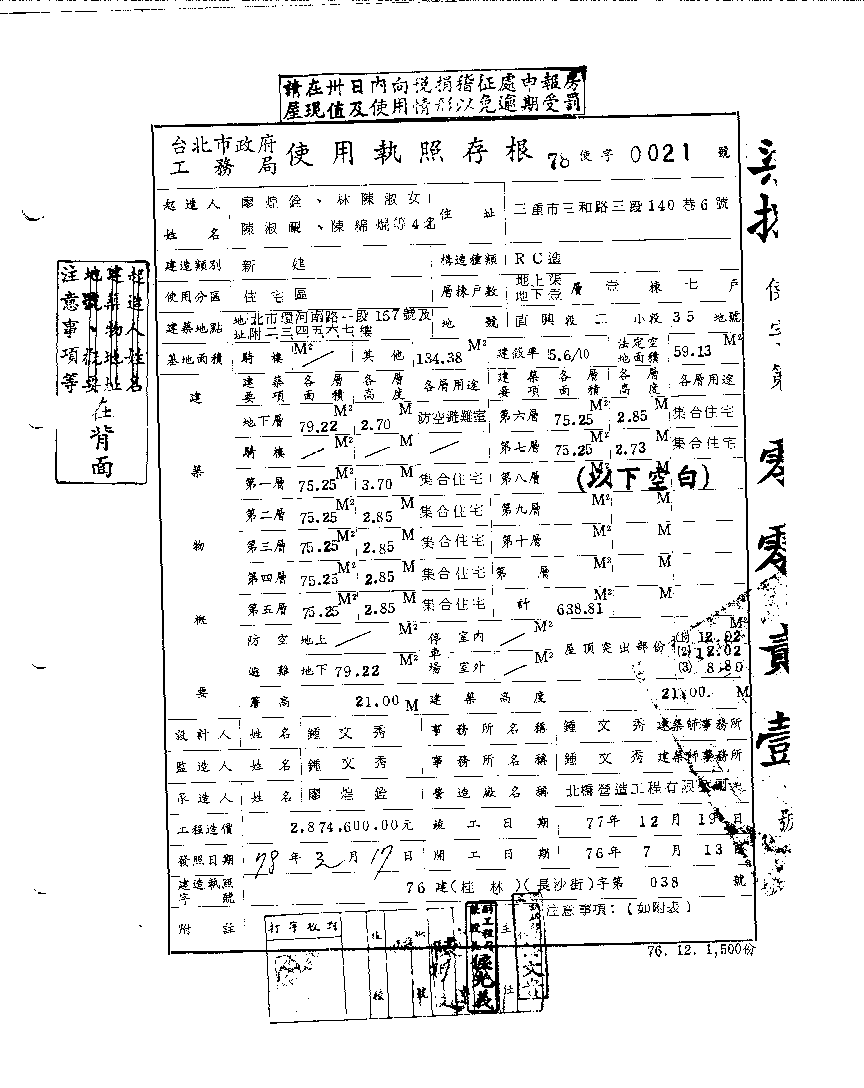 請在卅日內向稅捐稽征處申報房
屋現值及使用情形以免逾期受罰
台北市政府
工務局 使用執照存根 78 使字 0021 號
起造人 姓名 廖煌鎗、林陳淑女、陳淑 、陳綿焜等4名 住址 三重市三和路三段140巷6號
建造類別 新建 構造種類 RC造
使用分區 住宅區 層棟戶數 地上柒 地下壹 層 壹 棟 七 戶
建築地點 地址 北市環河南路一段157號及附二三四五六七樓 地號 直興段二小段35地號
基地面積 騎樓 M² 其他 134.38 M² 建蔽率 5.6/10 法定空地面積 59.13 M²
建築物概要
建築要項 各層面積 各層高度 各層用途 建築要項 各層面積 各層高度 各層用途
地下層 79.22 M² 2.70 M 防空避難室 第六層 75.25 M² 2.85 M 集合住宅
騎樓 M² M 第七層 75.25 M² 2.73 M 集合住宅
第一層 75.25 M² 3.70 M 集合住宅 第八層 (以下空白)
第二層 75.25 M² 2.85 M 集合住宅 第九層 M² M
第三層 75.25 M² 2.85 M 集合住宅 第十層 M² M
第四層 75.25 M² 2.85 M 集合住宅 第 層 M² M
第五層 75.25 M² 2.85 M 集合住宅 計 638.81 M²
防空避難 地上 M² 停車場 室內 M² 屋頂突出部份 (1) 12.02 M²
(2) 12.02
地下 79.22 M² 室外 M² (3) 8.80
簷高 21.00 M 建築高度 21.00 M
設計人 姓名 鍾文秀 事務所名稱 鍾文秀建築師事務所
監造人 姓名 鍾文秀 事務所名稱 鍾文秀建築師事務所
承造人 姓名 廖煌鎗 營造廠名稱 北橋營造工程有限公司
工程造價 2,874,600.00元 竣工日期 77年12月19日
發照日期 78年2月17日 開工日期 76年7月13日
建造執照字號 76建(桂林)(長沙街)字第 038 號
附註 注意事項:(如附表)
76. 12. 1,500份
起造人姓名
建築物地址
地號、概要
注意事項等
在背面
使字第
零零貳壹
號
打字校對